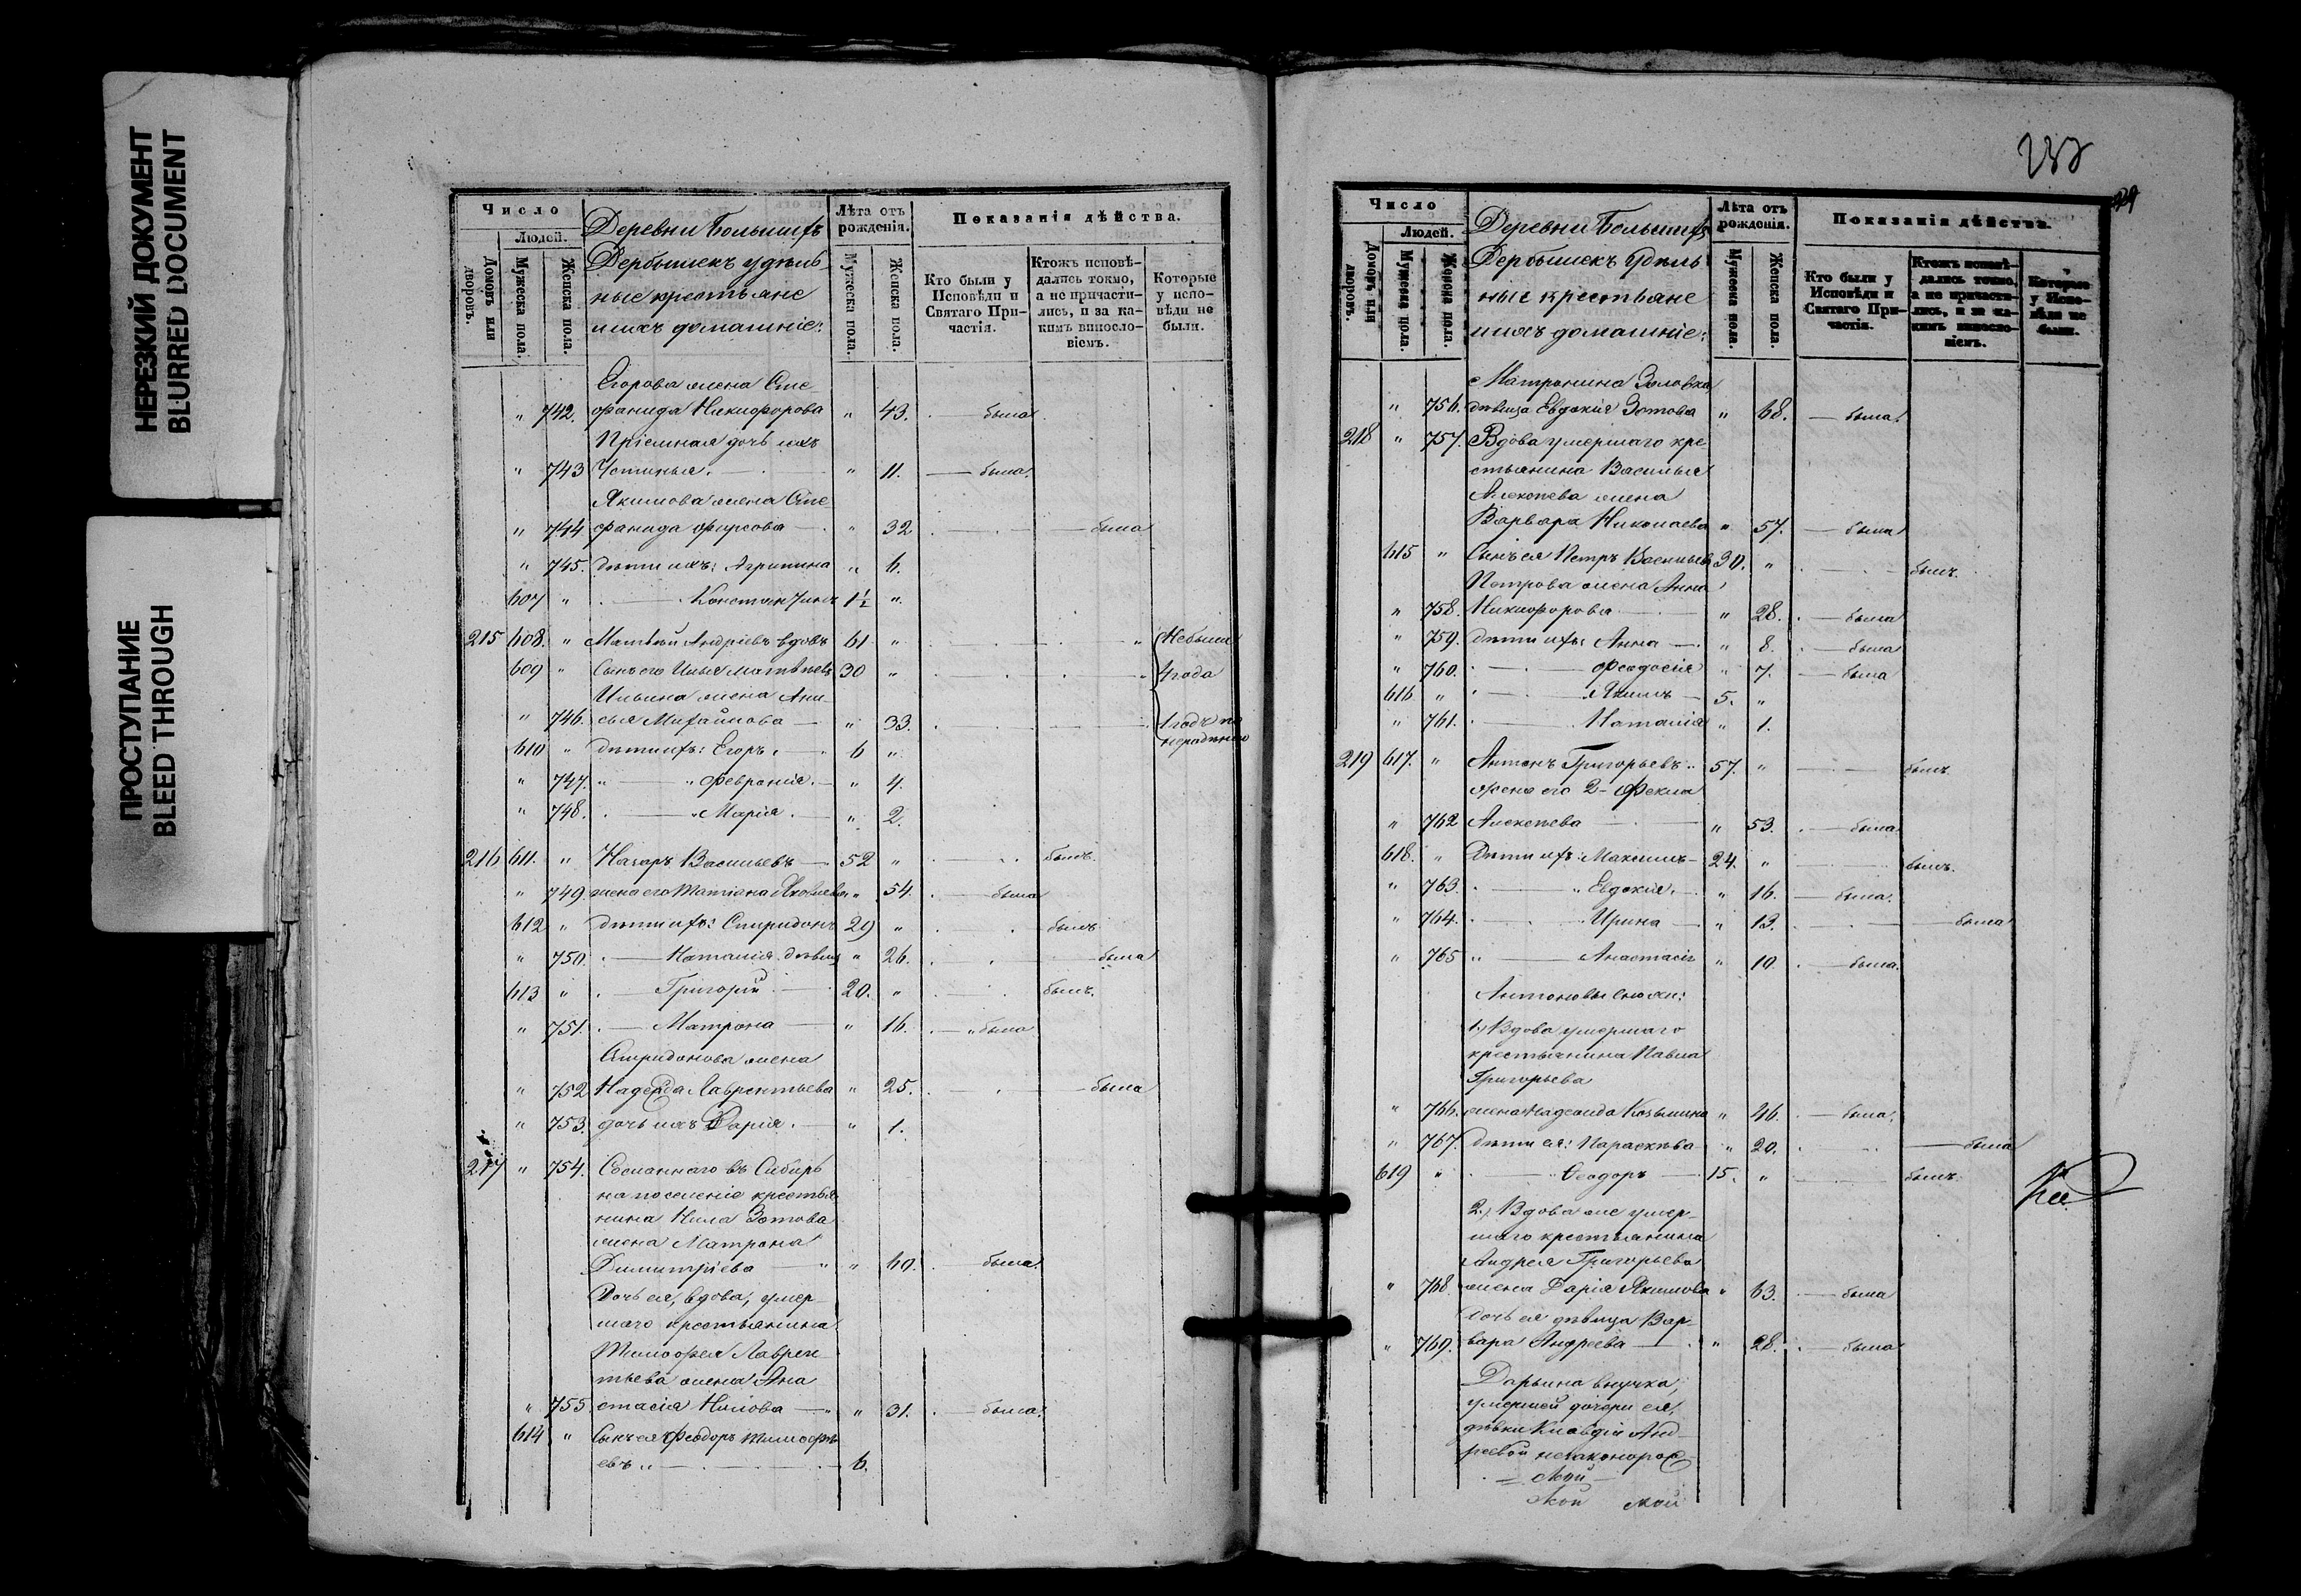 НЕРЕЗКИЙ ДОКУМЕНТ
BLURRED DOCUMENT
ПРОСТУПАНИЕ
BLEED THROUGH
Число
Людей.
Домовъ или дворовъ.
Мужеска пола.
Женска пола.
Деревни Большихъ
Дербышекъ удѣль-
ные крестьяне
и ихъ домашніе:
Лѣта отъ рожденія.
Мужеска пола.
Женска пола.
Показанія дѣйства.
Кто были у Исповѣди и Святаго Причастія.
Ктожъ исповѣдались токмо, а не причастились, и за какимъ винословіемъ.
Которые у исповѣди не были.
Егорова жена Сте
" 742. фанида Никифорова " 43. была
Пріемная дочь ихъ
" 743 Устинья. " 11. была
Якимова жена Сте
" 744 фанида Фирсова " 32 была
" 745. дѣти ихъ: Агрипина " 6.
607 " Константинъ 1½ "
215 608. " Матвѣй Андріевъ вдовъ 61 " Небыли
609 " Сынъ его Илья Матвѣевъ 30 " 4 года
Ильина жена Ани-
" 746. сья Михайлова " 33.
610 " дѣти ихъ: Егоръ. 6 "
" 747. " Февронія. " 4.
" 748. Марія. " 2.
216 611. " Назаръ Васильевъ 52 " былъ.
" 749. жена его Татіана Яковлева " 54. была
612 " дѣти ихъ: Спиридонъ 29 " былъ
" 750. Наталія дѣвица " 26. была
613 " Григорій 20. " былъ.
" 751. Матрона " 16. была
Спиридонова жена
" 752 Надежда Лаврентьева " 25. была
" 753. дочь ихъ Дарія. " 1.
217 " 754. Сосланнаго въ Сибирь
на поселеніе крестья-
нина Нила Зотова
жена Матрона
Димитріева " " 60. была.
Дочь ея, вдова, умер-
шаго крестьянина
Тимофея Лаврен-
тьева жена Ана
" 755 стасія Нилова " 31. была.
614 " Сынъ ея Феодоръ Тимофе
евъ 6.
Число
Людей.
Домовъ или дворовъ.
Мужеска пола.
Женска пола.
Деревни Большихъ
Дербышекъ Удѣль
ные крестьяне
и ихъ домашніе:
Лѣта отъ рожденія.
Мужеска пола.
Женска пола.
Показанія дѣйства.
Кто были у Исповѣди и Святаго Причастія.
Ктожъ исповѣдались токмо, а не причастились, и за какимъ винословіемъ.
Которые у Исповѣди не были.
Матронина Золовка,
" 756. дѣвица Евдокія Зотова " 68. была.
218 " 757. Вдова умершаго кре-
стьянина Василья
Алексѣева жена
Варвара Николаева " 57. была
615 " Сынъ ея Петръ Васильевъ 30. " былъ.
Петрова жена Анна
" 758. Никифорова " 28. была
" 759. дѣти ихъ: Анна " 8. была
" 760. Феодосія " 7. была
616 " Якимъ 5. "
" 761. Наталія " 1.
219 617. " Антонъ Григорьевъ 57. " былъ
Жена его 2- Фекла
" 762 Алексѣева " 53. была.
618. " Дѣти ихъ: Максимъ 24. " былъ.
" 763. Евдокія. " 16. была.
" 764. Ирина " 13. была
" 765 Анастасія " 10 была.
Антоновы снохи:
1.) Вдова умершаго
крестьянина Павла
Григорьева
" 766. жена Надежда Козьмина " 46. была.
" 767. дѣти ея: Параскѣва " 20. была
619 " Ѳеодоръ 15. " былъ.
2.) Вдова же умер-
шаго крестьянина
Андрея Григорьева
" 768. жена Дарія Якимова " 63. была
дочь ея дѣвица Вар-
" 769. вара Андреева " 28. была
Дарьина внучка,
умершей дочери ея,
дѣвки Клавдіи Анд-
реевой незаконорож-